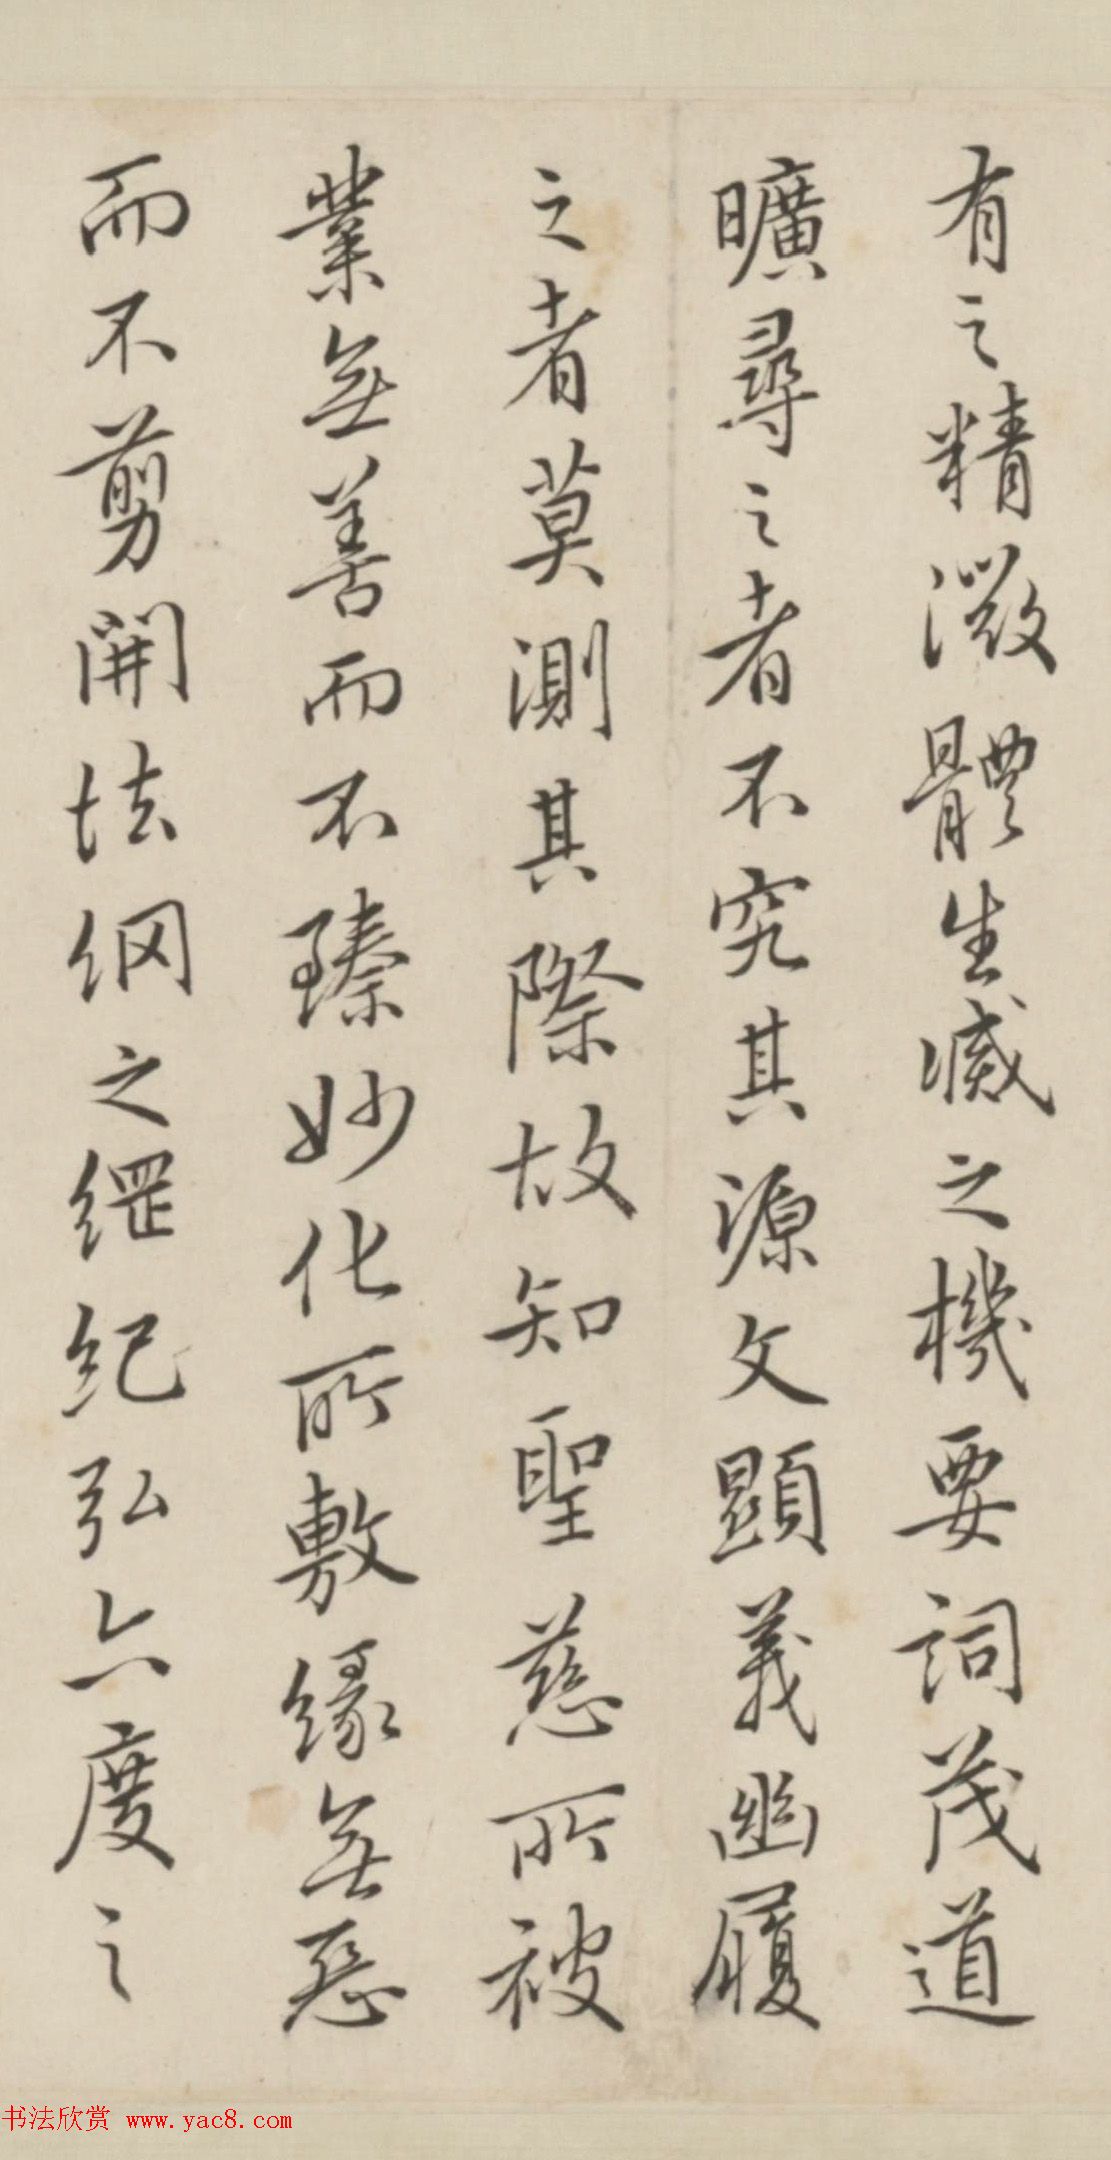 有之精微體生滅之機要詞茂道
曠尋之者不究其源文顯義幽履
之者莫測其際故知聖慈所被
業無善而不臻妙化所敷緣無惡
而不剪開法網之綱紀弘六度之
书法欣赏 www.yac8.com